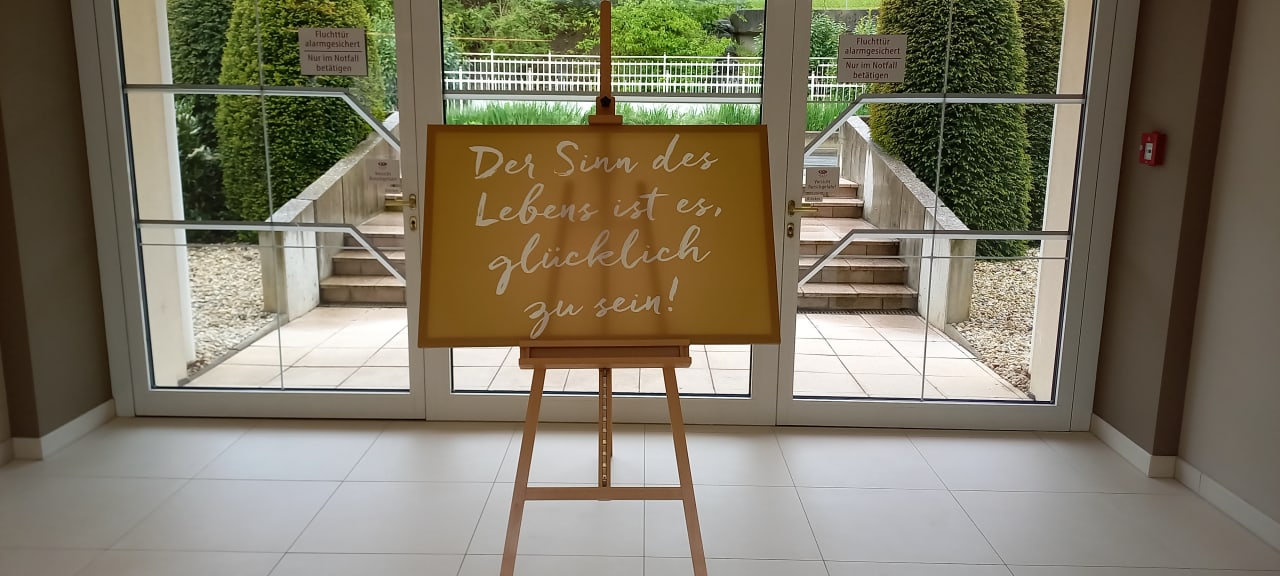 Fluchttür
alarmgesichert
Nur im Notfall
betätigen
Fluchttür
alarmgesichert
Nur im Notfall
betätigen
Der Sinn des
Lebens ist es,
glücklich
zu sein!